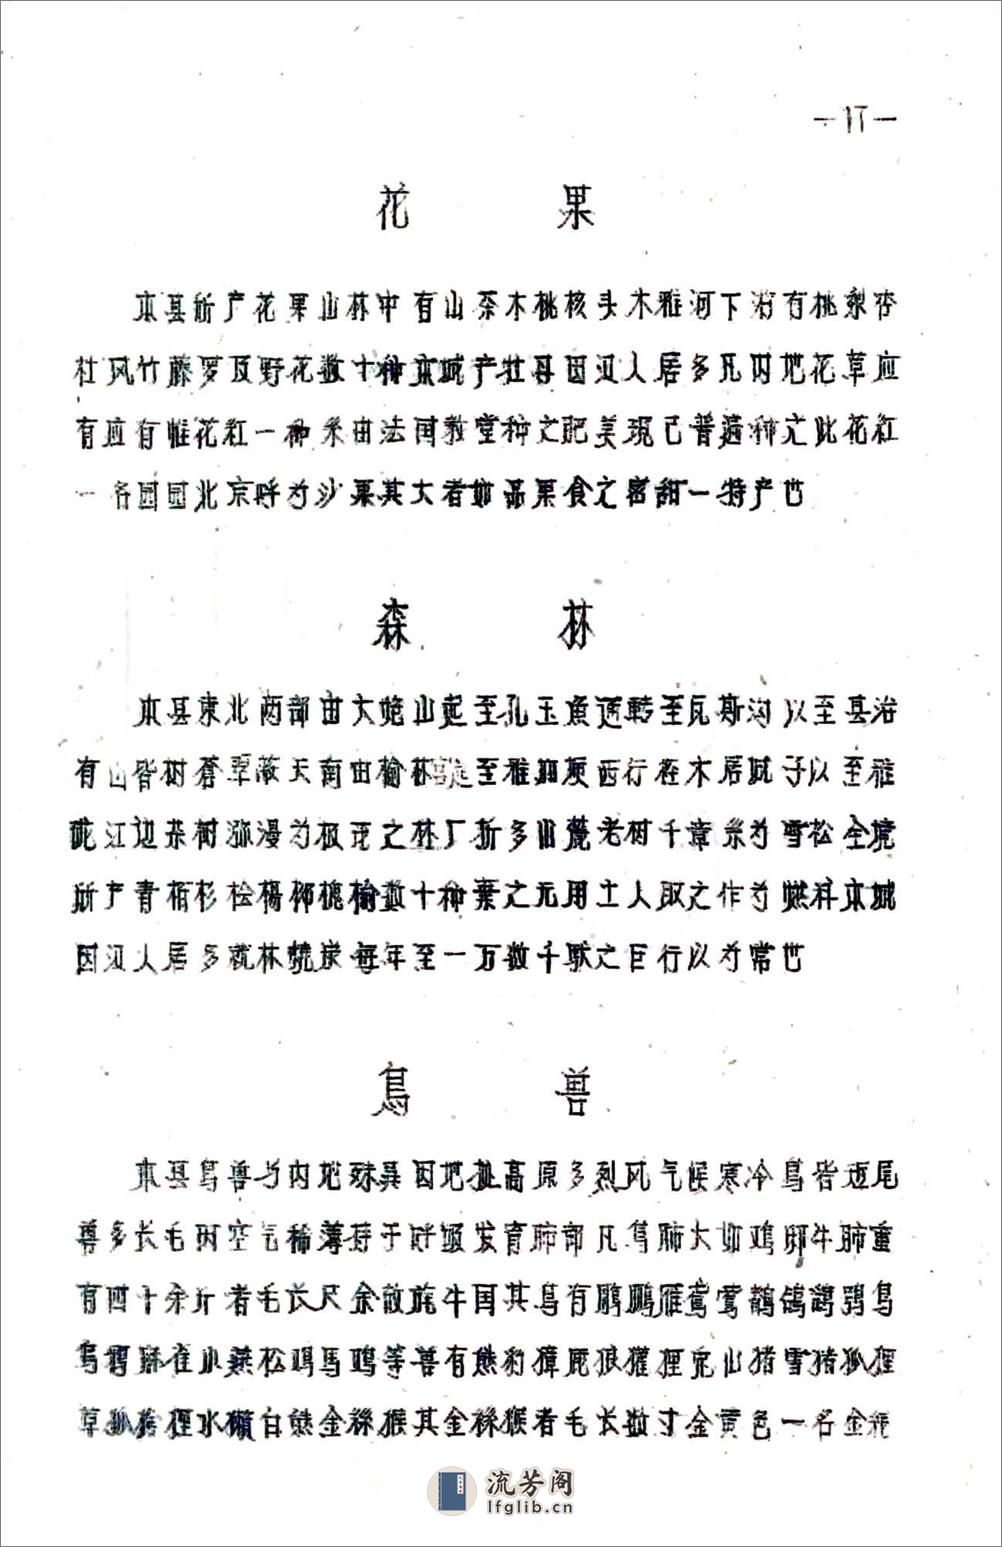 —17—
花 果
本县所产花果山林中有山茶木桃核头木雅河下游有桃梨杏
杜风竹藤罗及野花数十种本城产牡丹因汉人居多凡内地花草应
有应有惟花红一种系由法国教堂种之肥美现已普遍种之此花红
一名园北京呼为沙果其大者如苹果食之密甜一特产也
森 林
本县东北两部由大炮山起至孔玉鱼通转至瓦斯沟以至县治
有山皆树苍翠蔽天南由榆林宫起至雅加埂西行程木居贼子以至雅
砻江边杂树弥漫为极茂之林厂折多山麓老树千章系为雪松全境
所产青栢杉桧杨柳槐榆数十种弃之无用土人取之作为燃料本城
因汉人居多就林烧炭每年至一万数千驮之巨行以为常也
鸟 兽
本县鸟兽与内地殊异因地抵高原多烈风气候寒冷鸟皆短尾
兽多长毛因空气稀薄持于呼吸发育肺部凡鸟肺大如鸡即牛肺重
有四十余斤者毛长尺余故旄牛国其鸟有鹏雁鸳莺鹊鸽鹞鹗鸟
雀小燕松鸡马鸡等兽有熊豹獐鹿狼獾狸兔山猪雪猪狐狸
草狐猞狸水獭白熊金丝猴其金丝猴者毛长数寸金黄色一名金绒
流芳阁
lfglib.cn